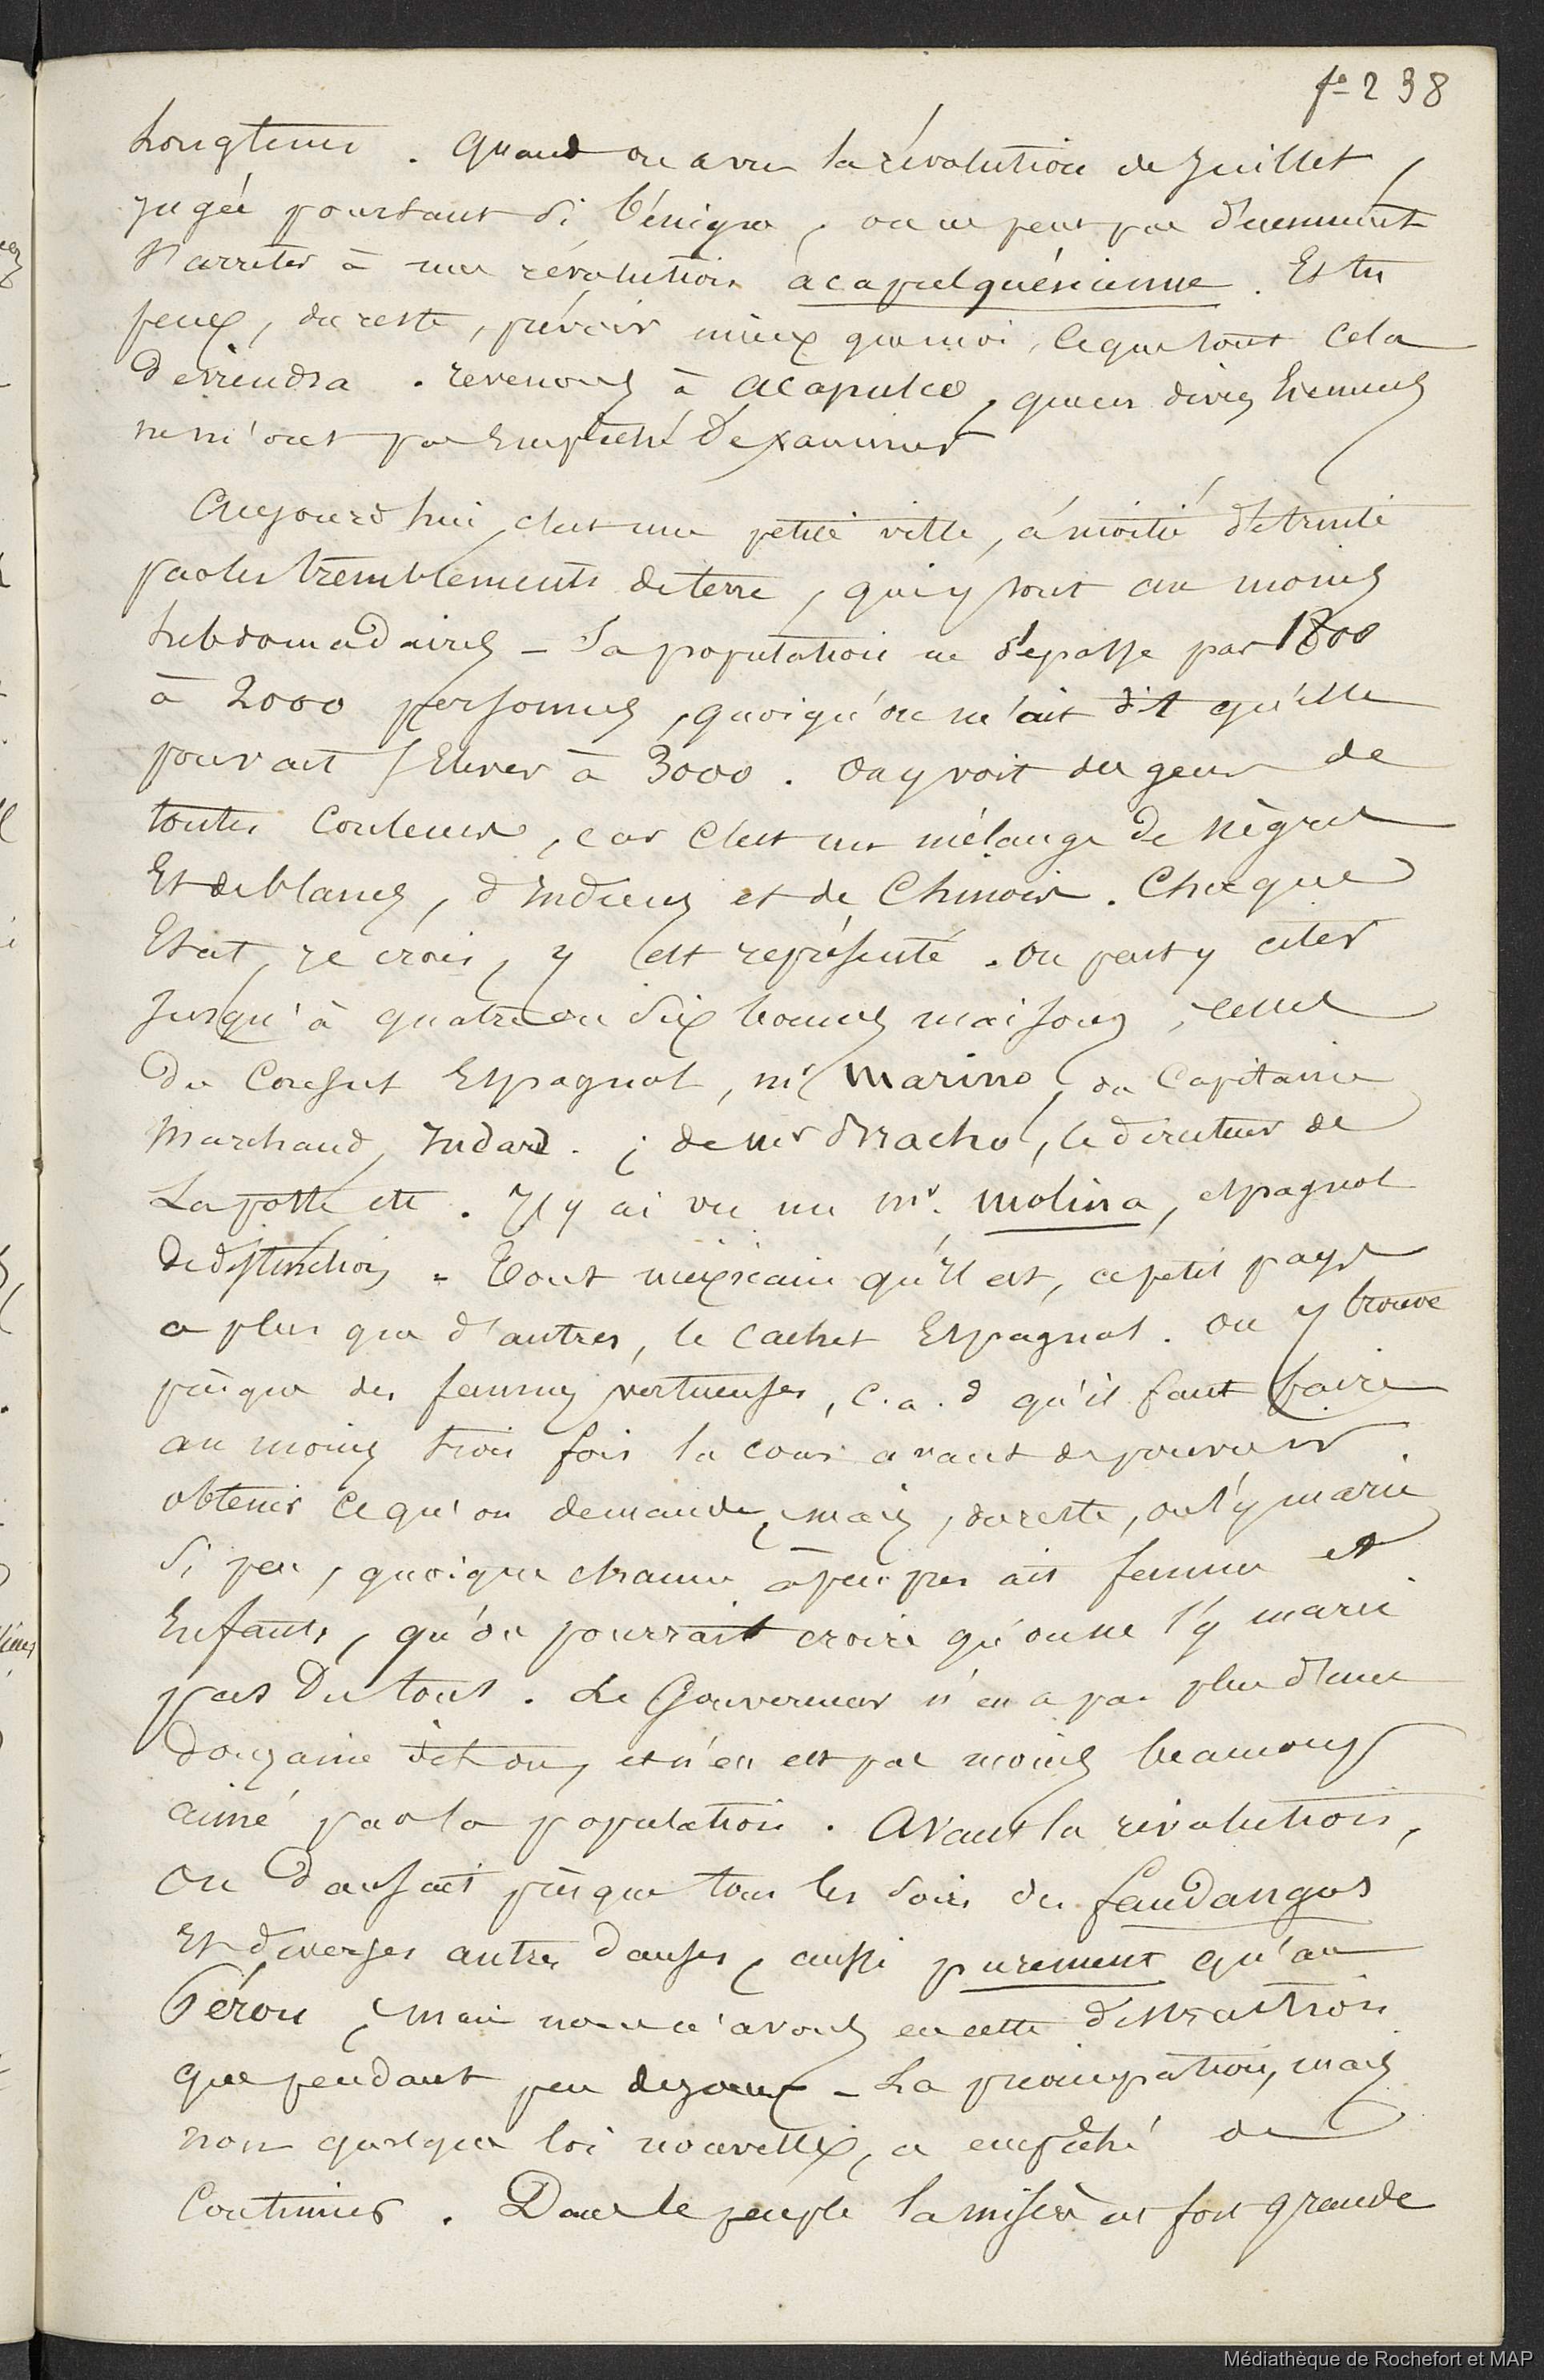 fo 238
Longtems. Quand on a vu la révolution de Juillet,
jugée pourtant si bénigne, on ne peut pas décemment
s'arrêter à une révolution acapulquésienne. Et tu
peux, du reste, prévoir mieux que moi, ce que tout cela
deviendra. revenons à Acapulco, que ces
ne m'ont pas Empêché d'Examiner
Aujourd'hui, c'est une petite ville, à moitié détruite
par les tremblements de terre, qui y sont au moins
hebdomadaires - Sa population ne dépasse pas 1800
à 2000 personnes, quoiqu'on m'ait dit qu'elle
pouvait s'Elever à 3000. On y voit des gens de
toutes Couleurs, car c'est un mélange de Nègres
Et de blancs, d'Indiens et de Chinois. Chaque
Etat, je crois, y est représenté. On peut y citer
Jusqu'à quatre ou Six bonnes maisons, celles
du Consul Espagnol, mr Marino, du Capitaine
Marchand, Indard. ; de mr Bracho, le directeur de
La poste etc. J'y ai vu un mr. Molina, espagnol
de distinction - Tout mexicain qu'il est, ce petit pays
a plus que d'autres, le cachet Espagnol. On y trouve
presque des femmes vertueuses, c.a.d qu'il faut faire
au moins trois fois la cour avant de pouvoir
obtenir ce qu'on demande, mais, du reste, on s'y marie
Si peu, quoique chacun à peu près ait femme et
Enfants, qu'on pourrait croire qu'on ne s'y marie
pas Du tout. Le Gouverneur n'en a pas plus d'une
Douzaine dit on, et n'en est pas moins beaucoup
aimé par la population. Avant la révolution,
on Dansait presque tous les soirs des fandangos
Et diverses autres danses, aussi purement qu'au
Pérou, mais nous n'avons eu cette distraction
que pendant peu de jours - La préoccupation, mais
non quelque loi nouvelle, a empêché de
Continuer. Dans le peuple la misère est fort grande
Médiathèque de Rochefort et MAP